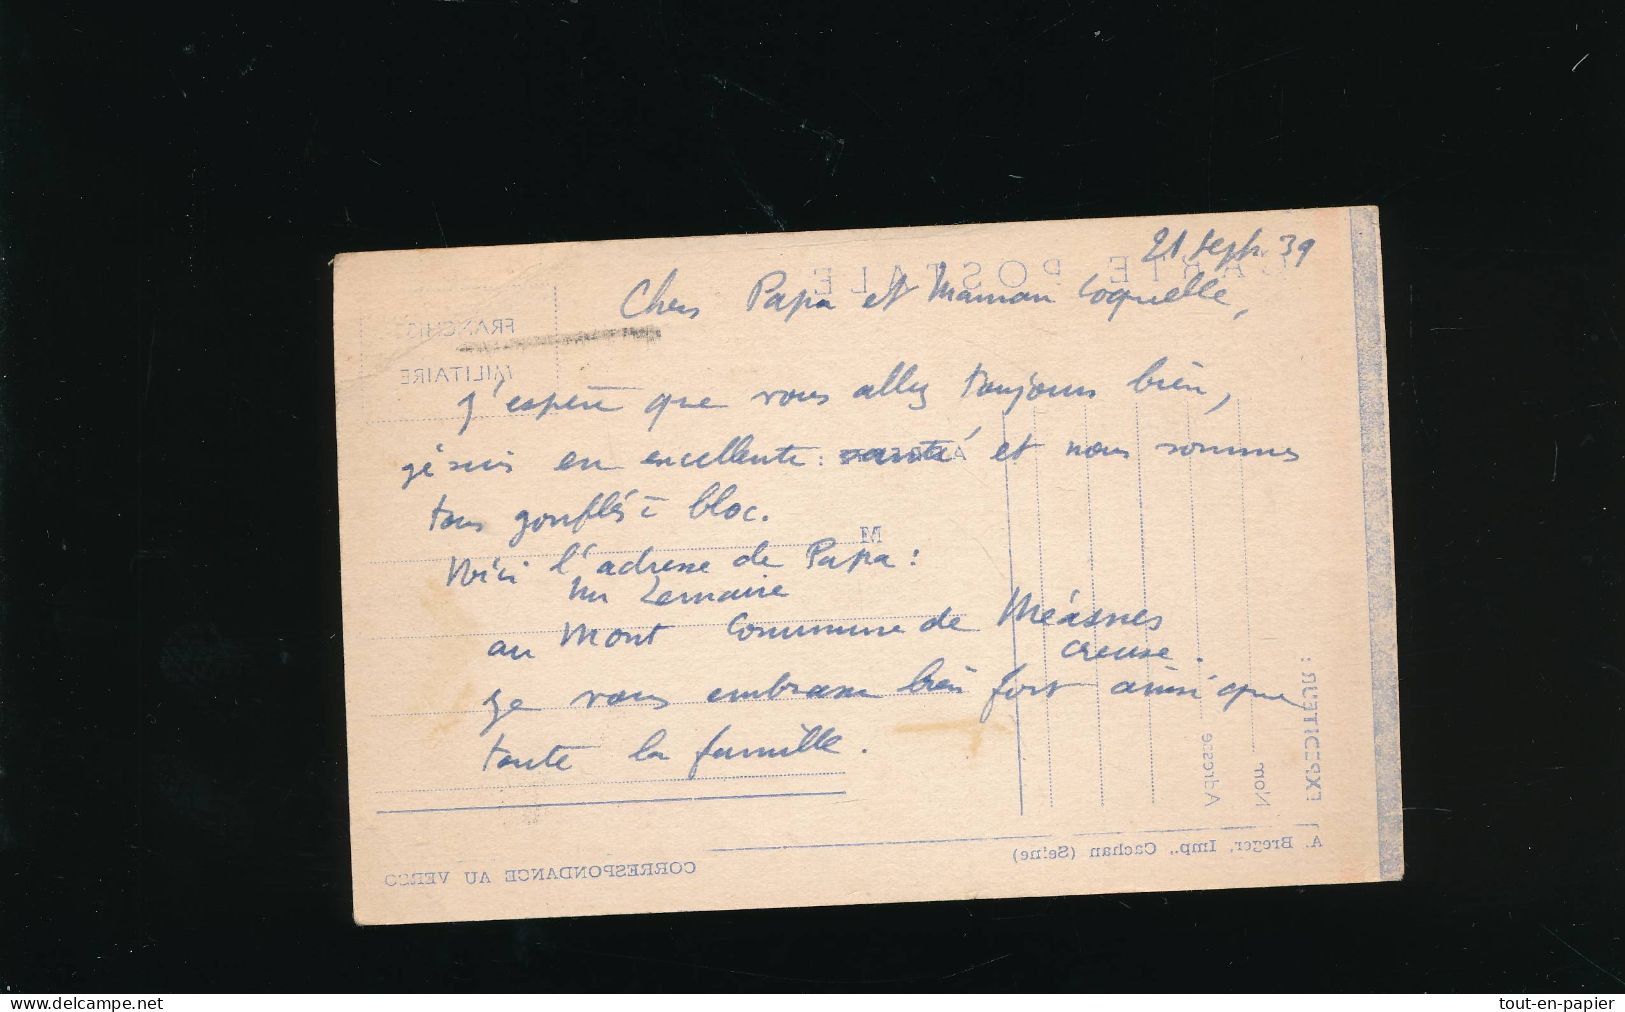 21 Sept. 39
Chers Papa et Maman Coquelle,
J'espère que vous allez toujours bien,
je suis en excellente santé et nous sommes
tous gonflés à bloc.
Voici l'adresse de Papa :
Mr Lemaire
au Mont Commune de Méasnes
Creuse.
Je vous embrasse bien fort ainsi que
toute la famille.
CARTE POSTALE
FRANCHISE
MILITAIRE
M
EXPEDITEUR :
Nom
Adresse
A. Breger, Imp., Cachan (Seine)
CORRESPONDANCE AU VERSO
www.delcampe.net
tout-en-papier